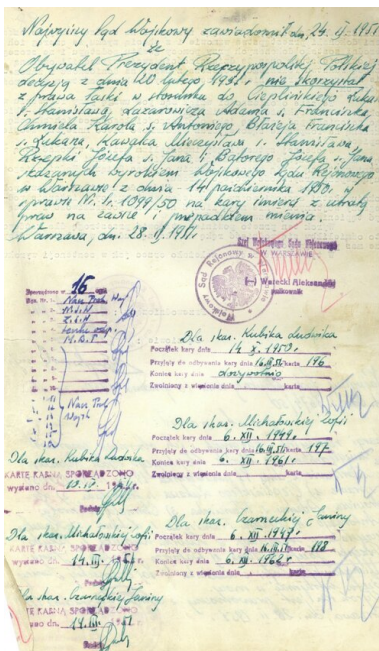 Najwyższy Sąd Wojskowy zawiadomił dn. 24. II. 1951
że
Obywatel Prezydent Rzeczypospolitej Polskiej
decyzją z dnia 20 lutego 1951 r. nie skorzystał
z prawa łaski w stosunku do Cieplińskiego Łukasza
s. Stanisława, Lazarowicza Adama s. Franciszka,
Chmiela Karola s. Antoniego, Błażeja Franciszka
s. Łukasza, Kawalca Mieczysława s. Stanisława
Rzepki Józefa s. Jana i Batorego Józefa s. Jana
skazanych wyrokiem Wojskowego Sądu Rejonowego
w Warszawie z dnia 14 października 1950 r. w
sprawie Nr. Sr. 1099/50 na kary śmierci z utratą
praw na zawsze i przepadkiem mienia.
Warszawa, dn. 28. II. 1951.
Szef Wojskowego Sądu Rejonowego
W WARSZAWIE
(—) Warecki Aleksander
pułkownik
Wojskowy Sąd Rejonowy w
Sporządzono w 16 egz.
Dla skaz. Kubika Ludwika
Początek kary dnia 14 X. 1950.
Przyjęty do odbywania kary dnia karta 196
Koniec kary dnia dożywotnio
Zwolniony z więzienia dnia karta
Dla skaz. Michałowskiej Zofii
Początek kary dnia 6. XII. 1949.
Przyjęty do odbywania kary dnia karta 197
Koniec kary dnia 6. XII. 1961.
Zwolniony z więzienia dnia karta
Dla skaz. Kubika Ludwika
KARTĘ KARNĄ SPORZĄDZONO
wysłano dn.
Podpis
Dla skaz. Michałowskiej Zofii
KARTĘ KARNĄ SPORZĄDZONO
wysłano dn. 14. III. 1951.
Podpis
Dla skaz. Czarneckiej Janiny
Początek kary dnia 6. XII 1947
Przyjęty do odbywania kary dnia karta 198
Koniec kary dnia 6. XII. 1962
Zwolniony z więzienia dnia karta
Dla skaz. Czarneckiej Janiny
KARTĘ KARNĄ SPORZĄDZONO
wysłano dn. 14. III. 1951.
Podpis